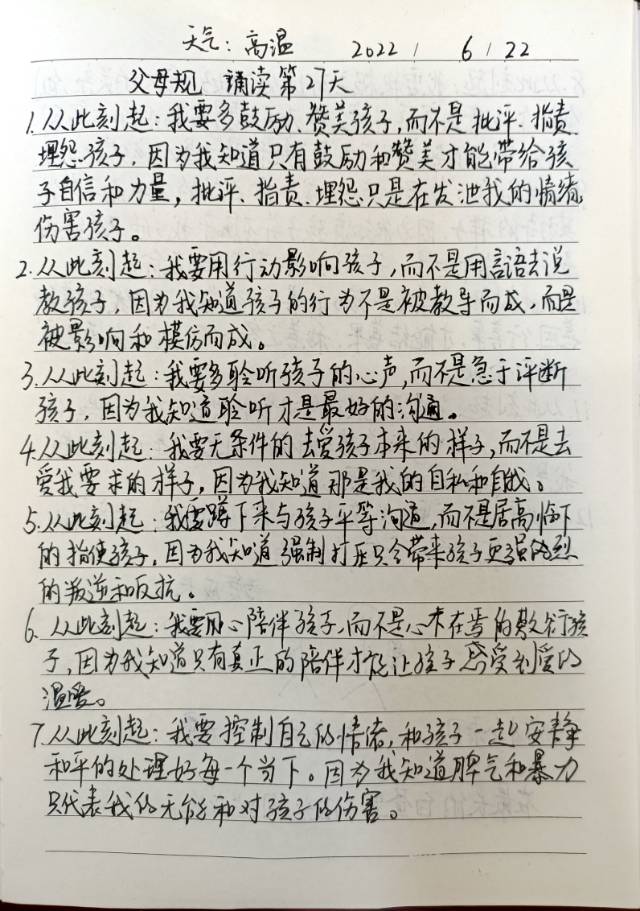 天气：高温 2022 / 6 / 22
父母规 诵读第27天
1.从此刻起：我要多鼓励、赞美孩子，而不是批评、指责、
埋怨孩子，因为我知道只有鼓励和赞美才能带给孩
子自信和力量，批评、指责、埋怨只是在发泄我的情绪，
伤害孩子。
2.从此刻起：我要用行动影响孩子，而不是用言语去说
教孩子，因为我知道孩子的行为不是被教导而成，而是
被影响和模仿而成。
3.从此刻起：我要多聆听孩子的心声，而不是急于评断
孩子，因为我知道聆听才是最好的沟通。
4.从此刻起：我要无条件的去爱孩子本来的样子，而不是去
爱我要求的样子，因为我知道那是我的自私和自我。
5.从此刻起：我要蹲下来与孩子平等沟通，而不是居高临下
的指使孩子，因为我知道强制打压只会带来孩子更强烈
的叛逆和反抗。
6.从此刻起：我要用心陪伴孩子，而不是心不在焉的敷衍孩
子，因为我知道只有真正的陪伴才能让孩子感受到爱的
温暖。
7.从此刻起：我要控制自己的情绪，和孩子一起安静
和平的处理好每一个当下。因为我知道脾气和暴力
只代表我的无能和对孩子的伤害。